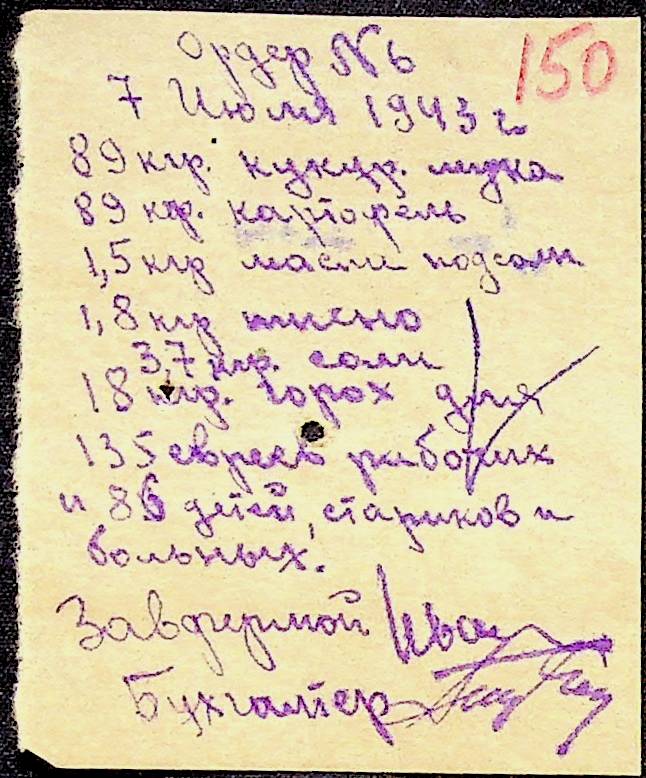 Ордер № 6
150
7 Июля 1943 г
89 кгр. кукур. мука
89 кгр. картофель
1,5 кгр масли подсолн
1,8 кгр пшено
3,7 кгр. соли
18 кгр. горох для
135 евреев рабочих
и 86 детей, стариков и
больных.
Завфермой Ива
Бухгалтер